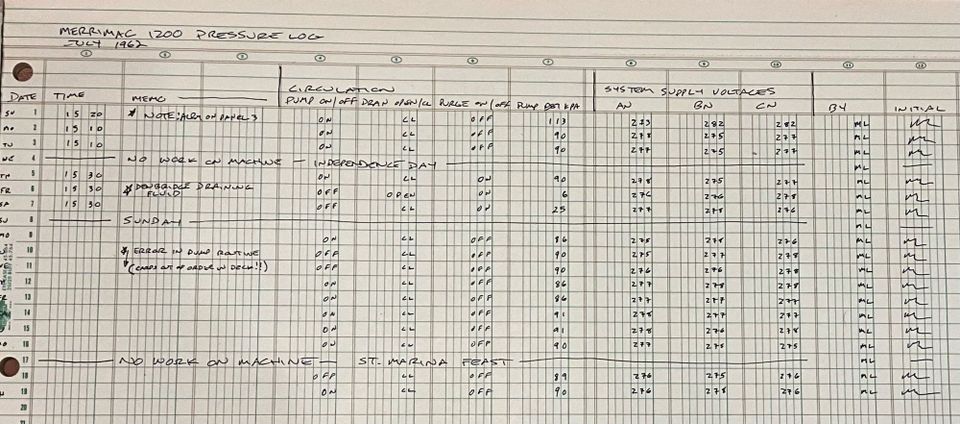 MERRIMAC 1200 PRESSURE LOG
JULY 1962
1 2 3 4 5 6 7 8 9 10 11 12
CIRCULATION SYSTEM SUPPLY VOLTAGES
DATE TIME MEMO PUMP ON/OFF DRAN OPEN/CL PURGE ON/OFF PUMP KPA AN BN CN BY INITIAL
SU 1 15 20 * NOTE: ON PANEL 3 ON CL OFF 113 282 282 ML
MO 2 15 10 ON CL OFF 90 278 275 277 ML
TU 3 15 10 ON CL OFF 90 277 275 277 ML
WE 4 NO WORK ON MACHINE — INDEPENDENCE DAY ML
TH 5 15 30 ON CL ON 90 278 275 277 ML
FR 6 15 30 * DRAINING FLUID OFF OPEN ON 6 276 276 278 ML
SA 7 15 30 OFF CL ON 25 277 278 276 ML
SU 8 SUNDAY ML
MO 9 ON CL OFF 86 275 278 276 ML
10 * ERROR IN DUMP ROUTINE OFF CL OFF 90 275 277 278 ML
11 (CARDS OUT OF ORDER IN DECK!!) OFF CL OFF 90 276 276 278 ML
12 ON CL OFF 86 277 278 278 ML
13 ON CL OFF 86 277 277 277 ML
14 ON CL OFF 91 278 278 277 ML
15 ON CL OFF 91 278 276 278 ML
16 ON CL OFF 90 277 275 275 ML
17 NO WORK ON MACHINE — ST. MARINA FEAST ML
18 OFF CL OFF 89 276 275 276 ML
19 ON CL OFF 90 276 278 276 ML
20